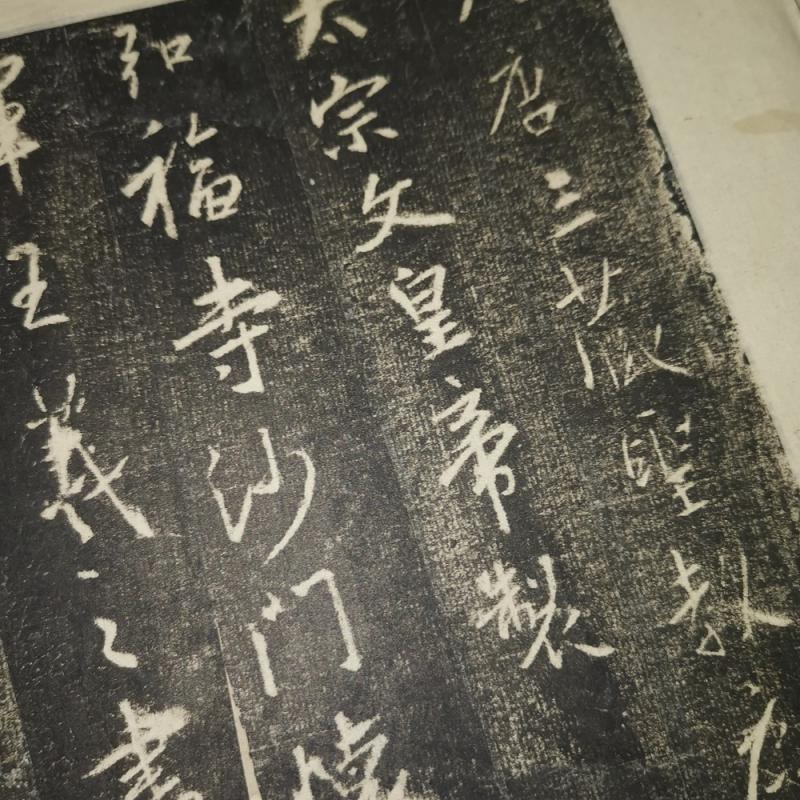 唐三藏聖教序
太宗文皇帝製
弘福寺沙門懷
軍王羲之書